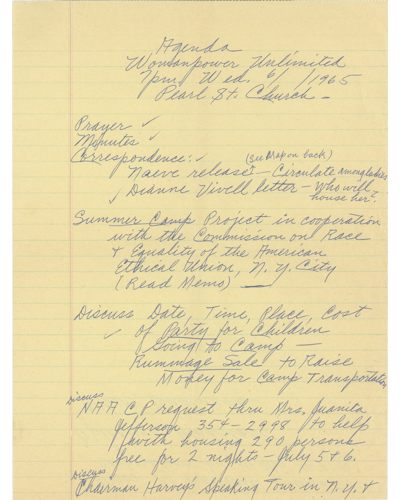 Agenda
Womanpower Unlimited
7pm. Wed. 6/ /1965
Pearl St. Church -
Prayer ✓
Minutes ✓
Correspondence: ✓ (See Map on back)
Naeve release - Circulate among ladies
✓ Dianne Vivell letter - Who will
house her?
Summer Camp Project in cooperation
with the Commission on Race
& Equality of the American
Ethical Union, N.Y. City
(Read Memo) —
Discuss Date, Time, Place, Cost
✓ of Party for Children
Going to Camp -
Rummage Sale to Raise
Money for Camp Transportation
Discuss
NAACP request thru Mrs. Juanita
Jefferson 354-2998 to help
with housing 290 persons
free for 2 nights - July 5 & 6.
Discuss
Chairman Harvey's Speaking Tour in N.Y. &